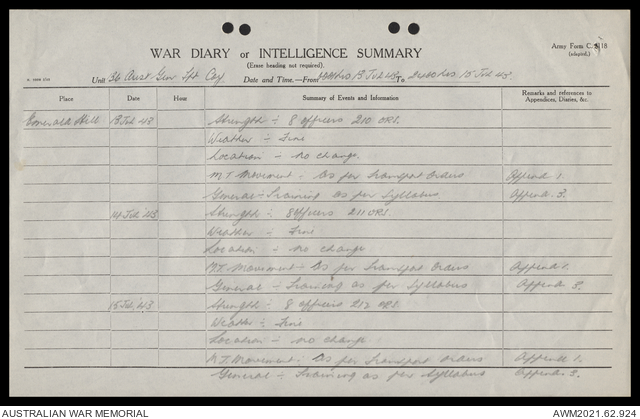 WAR DIARY or INTELLIGENCE SUMMARY
(Erase heading not required).
Army Form C.2118
(adapted.)
Unit 36 Aust Gen Tpt Coy Date and Time.—From 13 Feb 43 To 2400 hrs 15 Feb 43.
Place Date Hour Summary of Events and Information Remarks and references to Appendices, Diaries, &c.
Emerald Hill 13 Feb 43 Strength :- 8 officers 210 ORs.
Weather :- Fine
Location :- no change.
M.T. Movement :- As per Transport Orders Append 1.
General :- Training as per Syllabus Append. 3.
14 Feb 43 Strength :- 8 officers 211 ORs.
Weather :- Fine
Location :- no change
M.T. Movement :- As per Transport Orders Append 1.
General :- Training as per Syllabus Append 3.
15 Feb 43 Strength :- 8 officers 212 ORs.
Weather :- Fine
Location :- no change
M.T. Movement :- As per Transport Orders Append 1.
General :- Training as per Syllabus Append. 3.
AUSTRALIAN WAR MEMORIAL AWM2021.62.924